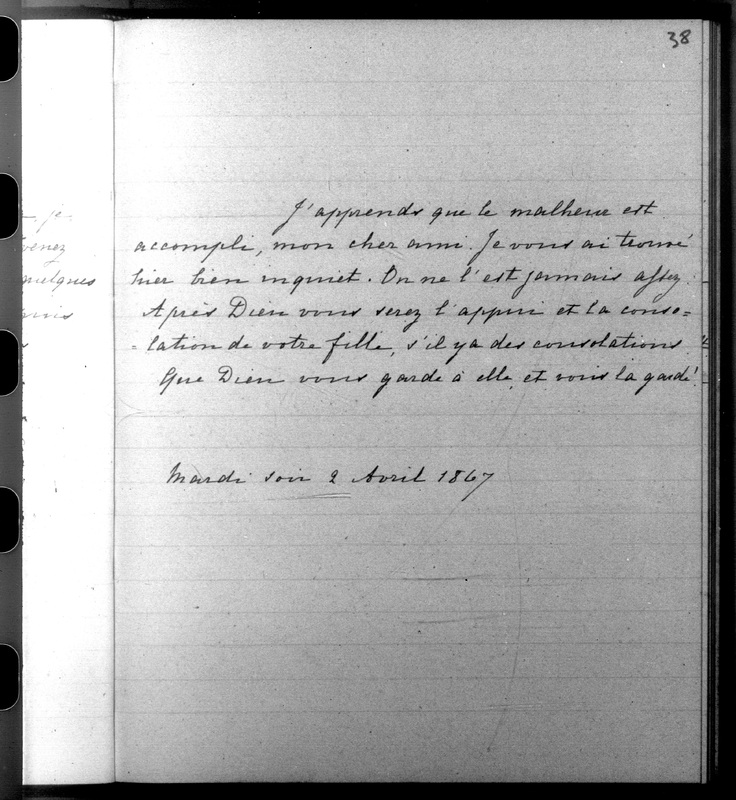 38
J'apprends que le malheur est
accompli, mon cher ami. Je vous ai trouvé
hier bien inquiet. On ne l'est jamais assez.
Après Dieu vous serez l'appui et la conso=
=lation de votre fille, s'il y a des consolations.
Que Dieu vous garde à elle, et vous la garde!
Mardi soir 2 Avril 1867
je
venez
quelques